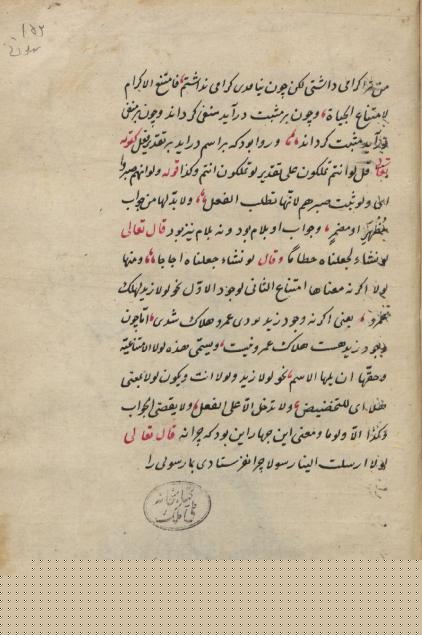 من ترا کرامی داشتی لکن چون نیامدی کرامی نداشتم فامتنع الاکرام
لامتناع المجیئة وچون بر مثبت درآید منفی کرداند وچون بر منفی
درآید مثبت کرداند وروا بود که بر اسم دراید بر تقدیر فعل کقوله
تعالی قل لو انتم تملکون علی تقدیر لو تملکون انتم وکذا قوله ولو انهم صبروا
ای ولو ثبت صبرهم لانها تطلب الفعل ولابد لها من جواب
مظهر او مضمر وجواب او بلام بود ونه بلام نیز بود قال تعالی
لو نشاء لجعلناه حطاما وقال لو نشاء جعلناه اجاجا ومنها
لولا اکرنه معناها امتناع الثانی لوجود الاول نحو لولا زید لهلک
عمرو یعنی اکرنه وجود زید بودی عمرو هلاک شدی اما چون
وجود زید هست هلاک عمرو نیست ویسمی هذه لولا الامتناعیة
وحقها ان یلیها الاسم نحو لولا زید ولولا انت ویکون لولا بمعنی
هلا ای للتحضیض ولا تدخل الا علی الفعل ولا یقتضی الجواب
وکذا الا ولوما ومعنی این چهار این بود که چرا نه قال تعالی
لولا ارسلت الینا رسولا چرا نفرستادی بما رسولی را